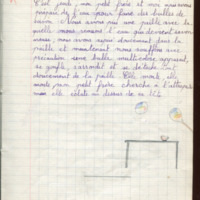 C'est jeudi, mon petit frère et moi avons
préparé de l'eau pour faire des bulles de
savon. Nous avons pris une paille avec la
quelle nous remuons l'eau
nous avons aspiré doucement dans la
paille et maintenant nous soufflons avec
précaution une bulle multicolore apparaît,
se gonfle, s'arrondit et se détache
doucement de la paille. Elle monte, elle
monte, mon petit frère cherche à l'attraper
mais elle éclate au dessus de